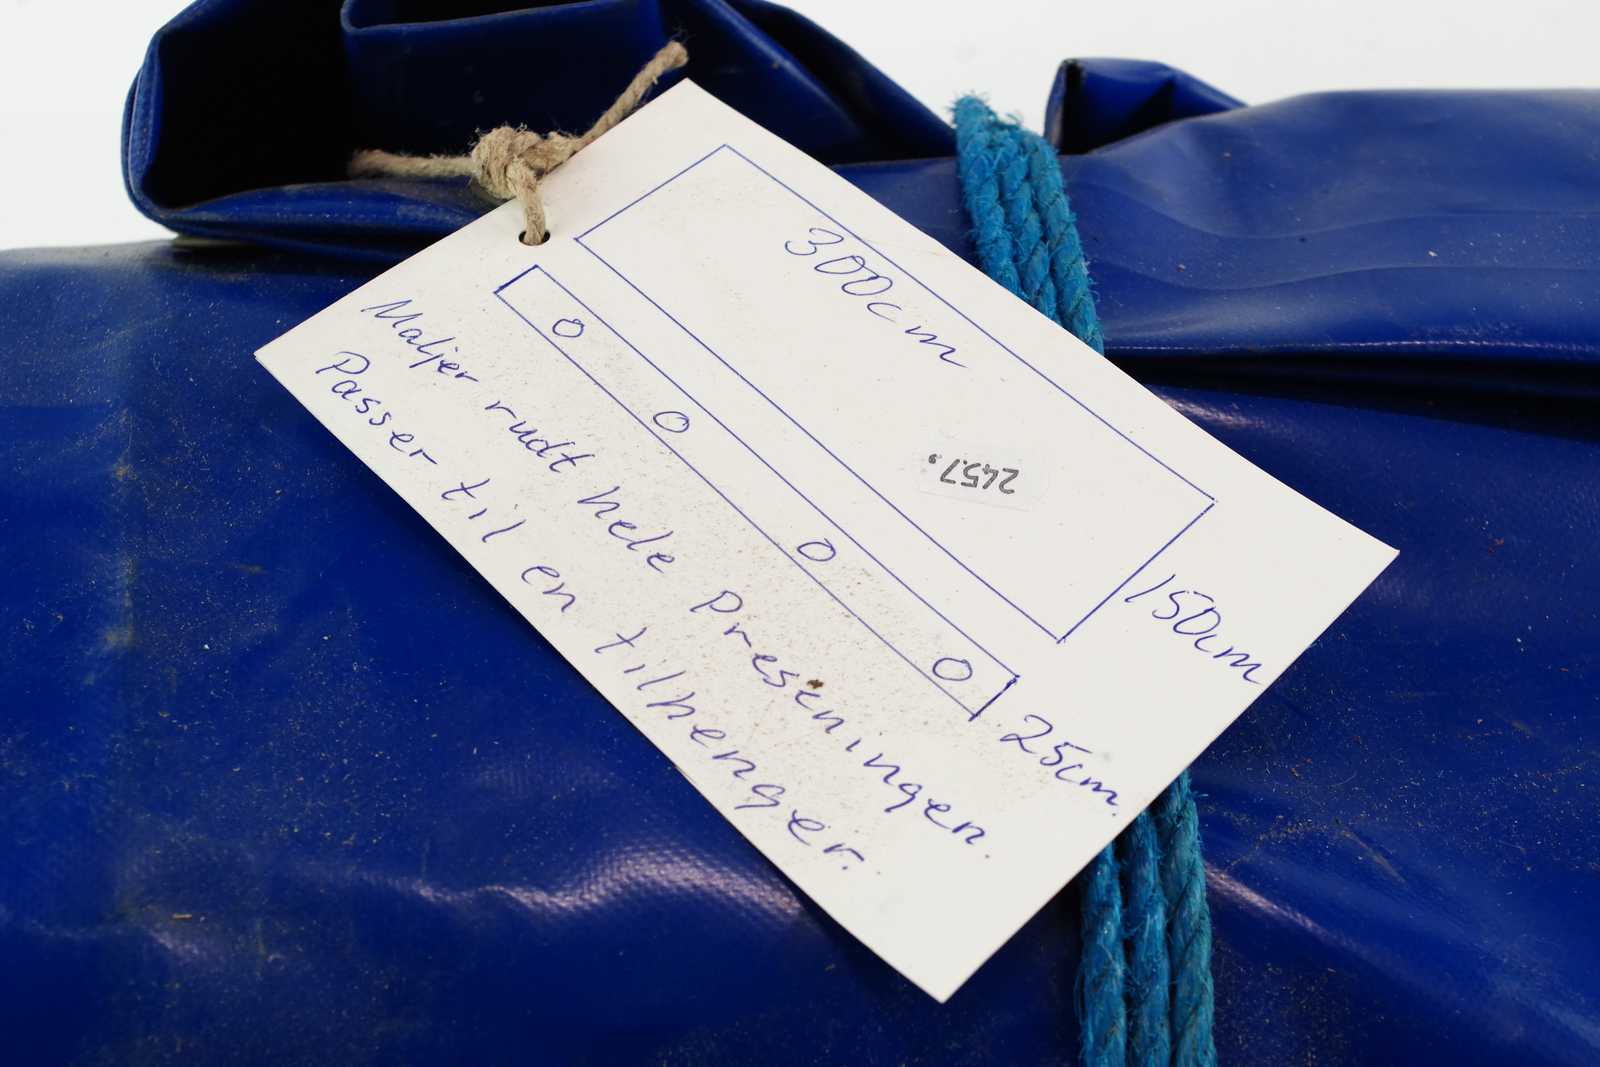 300cm
2457.
150cm
25cm.
Maljer rudt hele Preseningen.
Passer til en tilhenger.